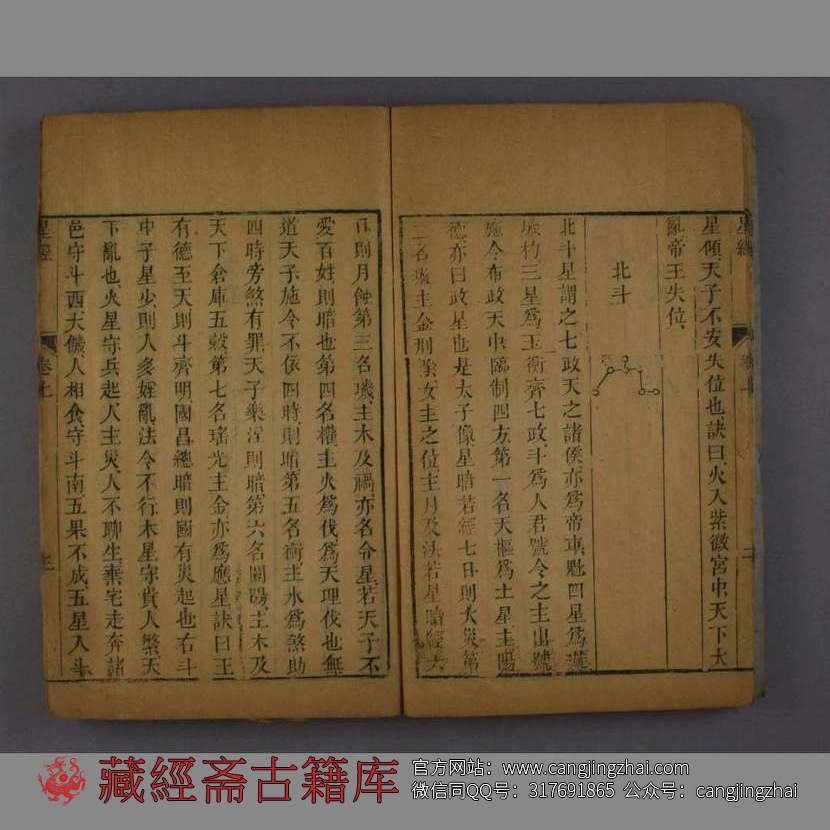 星傾天子不安失位也訣曰火入紫微宮中天下大
亂帝王失位
北斗
北斗星謂之七政天之諸侯亦為帝車魁四星為璇
璣杓三星為玉衡齊七政斗為人君號令之主出號
施令布政天中臨制四方第一名天樞為土星主陽
德亦曰政星也是太子像星暗若經七日則大災第
二名璇主金刑陰女主之位主月及法若星暗經六
日則月蝕第三名璣主木及禍亦名令星若天子不
愛百姓則暗也第四名權主火為伐為天理伐也無
道天子施令不依四時則暗第五名衡主水為煞助
四時旁煞有罪天子樂淫則暗第六名闓陽主木及
天下倉庫五穀第七名瑤光主金亦為應星訣曰王
有德至天則斗齊明國昌總暗則國有災起也右斗
中子星少則人多婬亂法令不行木星守貴人繁天
下亂也火星守兵起人主災人不聊生棄宅走奔諸
邑守斗西大饑人相食守斗南五果不成五星入斗
星經
卷上
藏經斋古籍库
官方网站：www.cangjingzhai.com
微信同QQ号：317691865 公众号：cangjingzhai